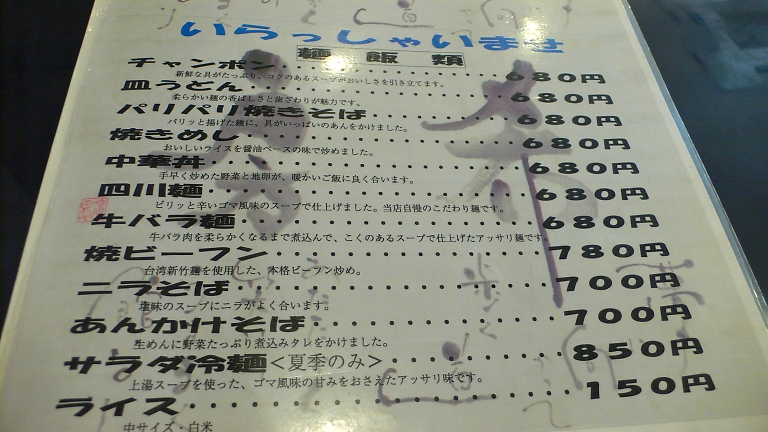 いらっしゃいませ
麺飯類
チャンポン・・・・・・・・・・・・680円
新鮮な具がたっぷり、コクのあるスープがおいしさを引き立てます。
皿うどん・・・・・・・・・・・・680円
柔らかい麺の香ばしさと歯ざわりが魅力です。
パリパリ焼きそば・・・・・・・・680円
パリッと揚げた麺に、具がいっぱいのあんをかけました。
焼きめし・・・・・・・・・・・・680円
おいしいライスを醤油ベースの味で炒めました。
中華丼・・・・・・・・・・・・・680円
手早く炒めた野菜と地卵が、暖かいご飯に良く合います。
四川麺・・・・・・・・・・・・・680円
ピリッと辛いゴマ風味のスープで仕上げました。当店自慢のこだわり麺です。
牛バラ麺・・・・・・・・・・・・680円
牛バラ肉を柔らかくなるまで煮込んで、こくのあるスープで仕上げたアッサリ麺です。
焼ビーフン・・・・・・・・・・・780円
台湾新竹麺を使用した、本格ビーフン炒め。
ニラそば・・・・・・・・・・・・700円
塩味のスープにニラがよく合います。
あんかけそば・・・・・・・・・・700円
生めんに野菜たっぷり煮込みタレをかけました。
サラダ冷麺＜夏季のみ＞・・・・・850円
上湯スープを使った、ゴマ風味の甘みをおさえたアッサリ味です。
ライス・・・・・・・・・・・・・150円
中サイズ・白米